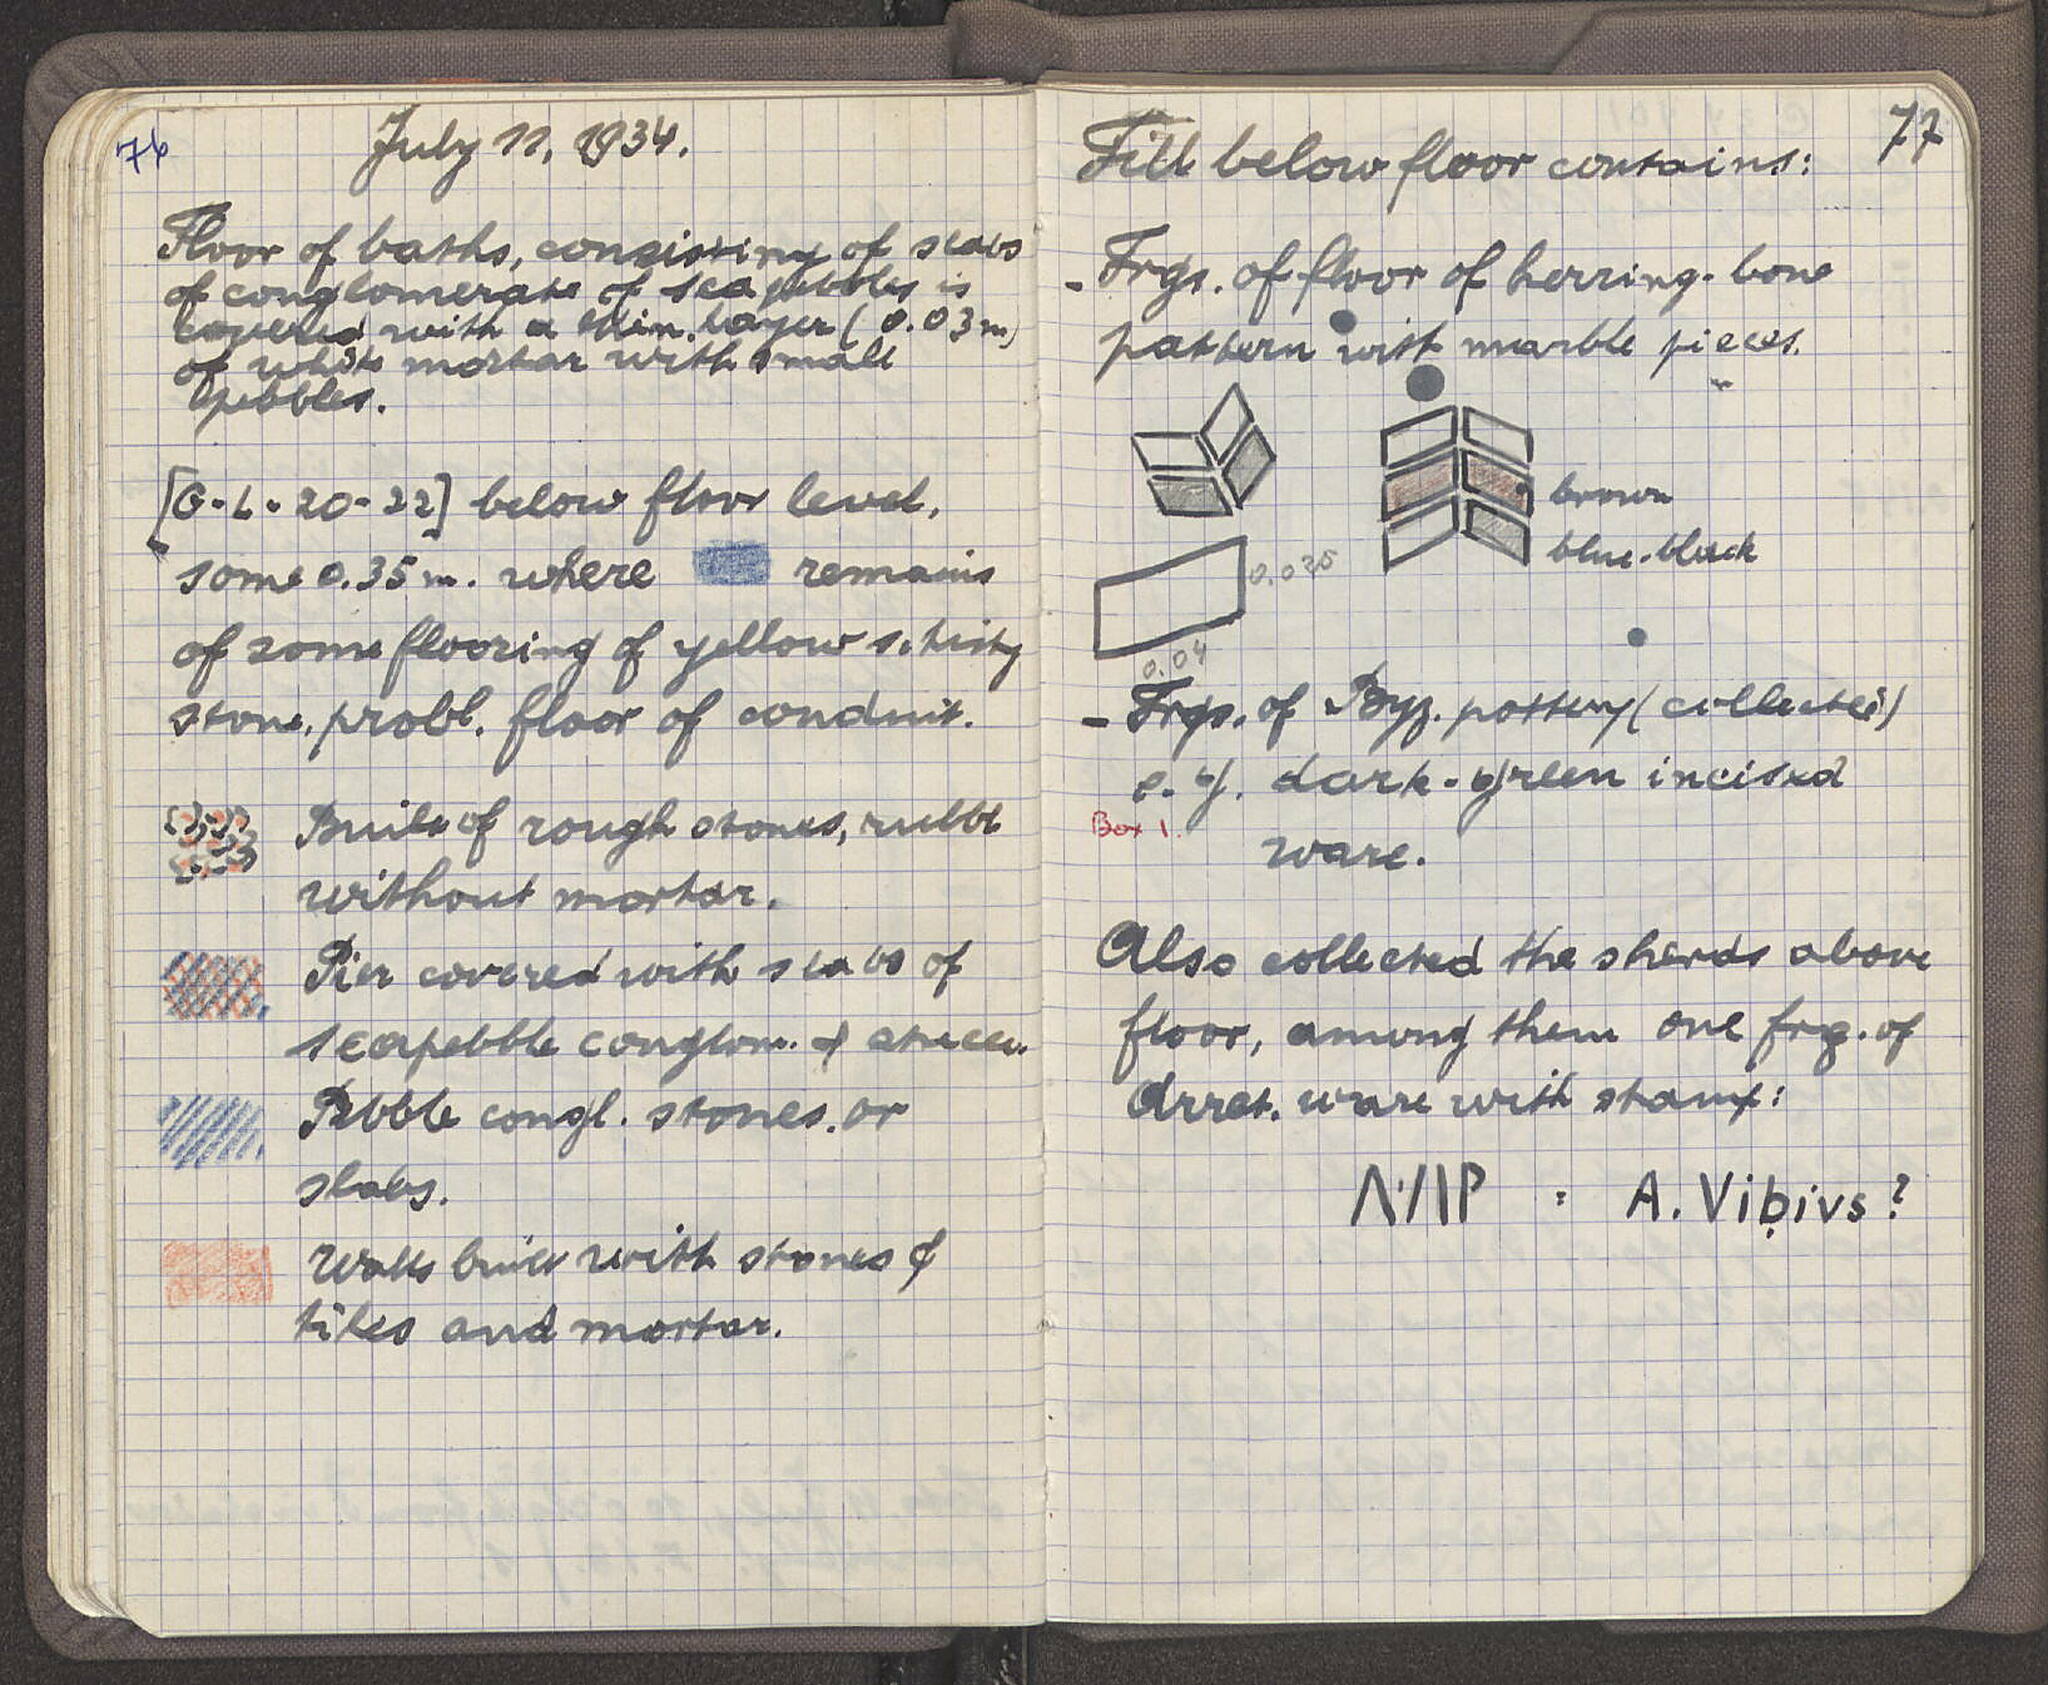 76
July 11, 1934.
Floor of baths, consisting of slabs
of conglomerate of sea pebbles is
covered with a thin layer (0.03 m)
of white mortar with small
pebbles.
[G-L-20-22] below floor level,
some 0.35 m. where remains
of some flooring of yellow schisty
stone, probl. floor of conduit.
Built of rough stones, rubbl
without mortar.
Pier covered with slabs of
seapebble conglom. & stucco.
Pebble congl. stones or
slabs.
Walls built with stones &
tiles and mortar.
77
Fill below floor contains:
- Frgs. of floor of herring-bone
pattern with marble pieces.
brown
blue-black
0.025
0.04
- Frgs. of Byz. pottery (collected)
e.g. dark-green incised
Box 1.
ware.
Also collected the sherds above
floor, among them one frg. of
Arret. ware with stamp:
: A. Vibivs?